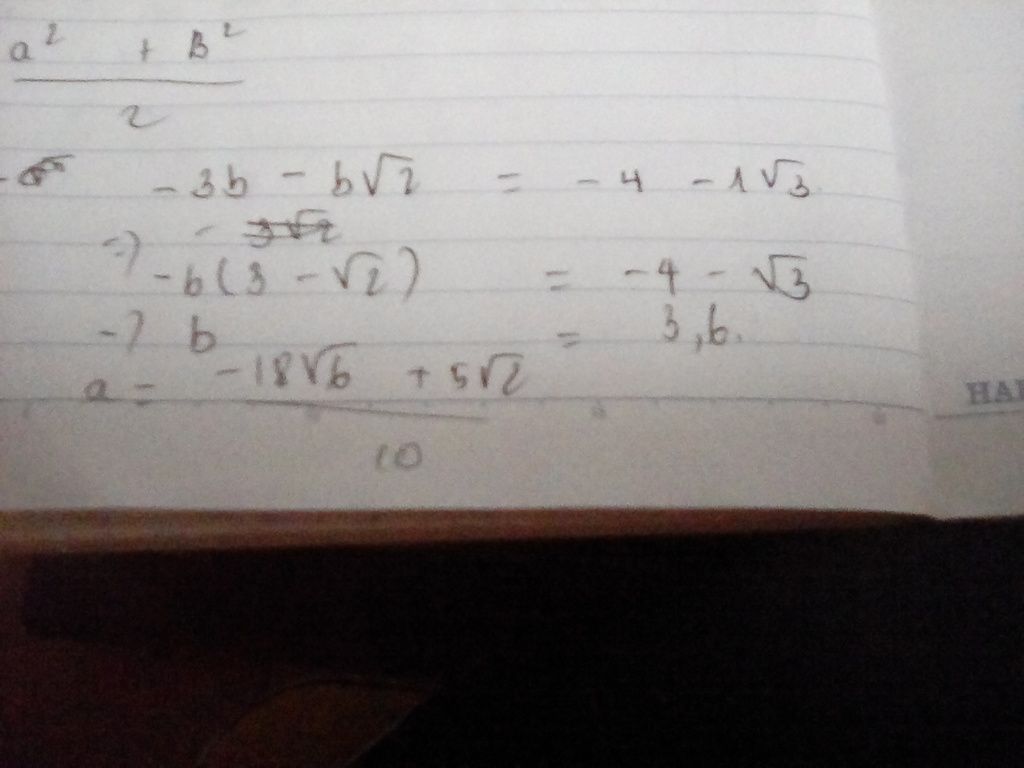 a² + B²
2
-3b - b√2 = -4 - 1√3
=) -
-b(3 - √2) = -4 - √3
-) b = 3,6.
a = -18√6 + 5√2
10
HAI